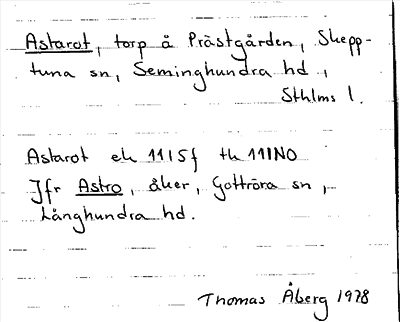 Astarot, torp å Prästgården, Skepp-
tuna sn, Seminghundra hd,
Sthlms l.
Astarot ek 11I5f tk 11INO
Jfr Astro, åker, Gottröra sn,
Långhundra hd.
Thomas Åberg 1978